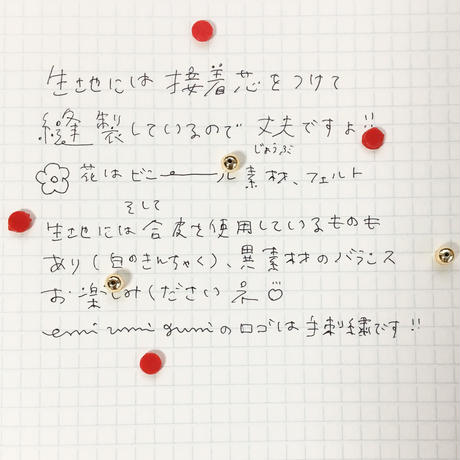 生地には接着芯をつけて
縫製しているので丈夫ですよ!!
じょうぶ
花はビニール素材、フェルト
そして
生地には合皮を使用しているものも
あり(白のきんちゃく)、異素材のバランス
お楽しみくださいネ
emi umi gumiのロゴは手刺繍です!!